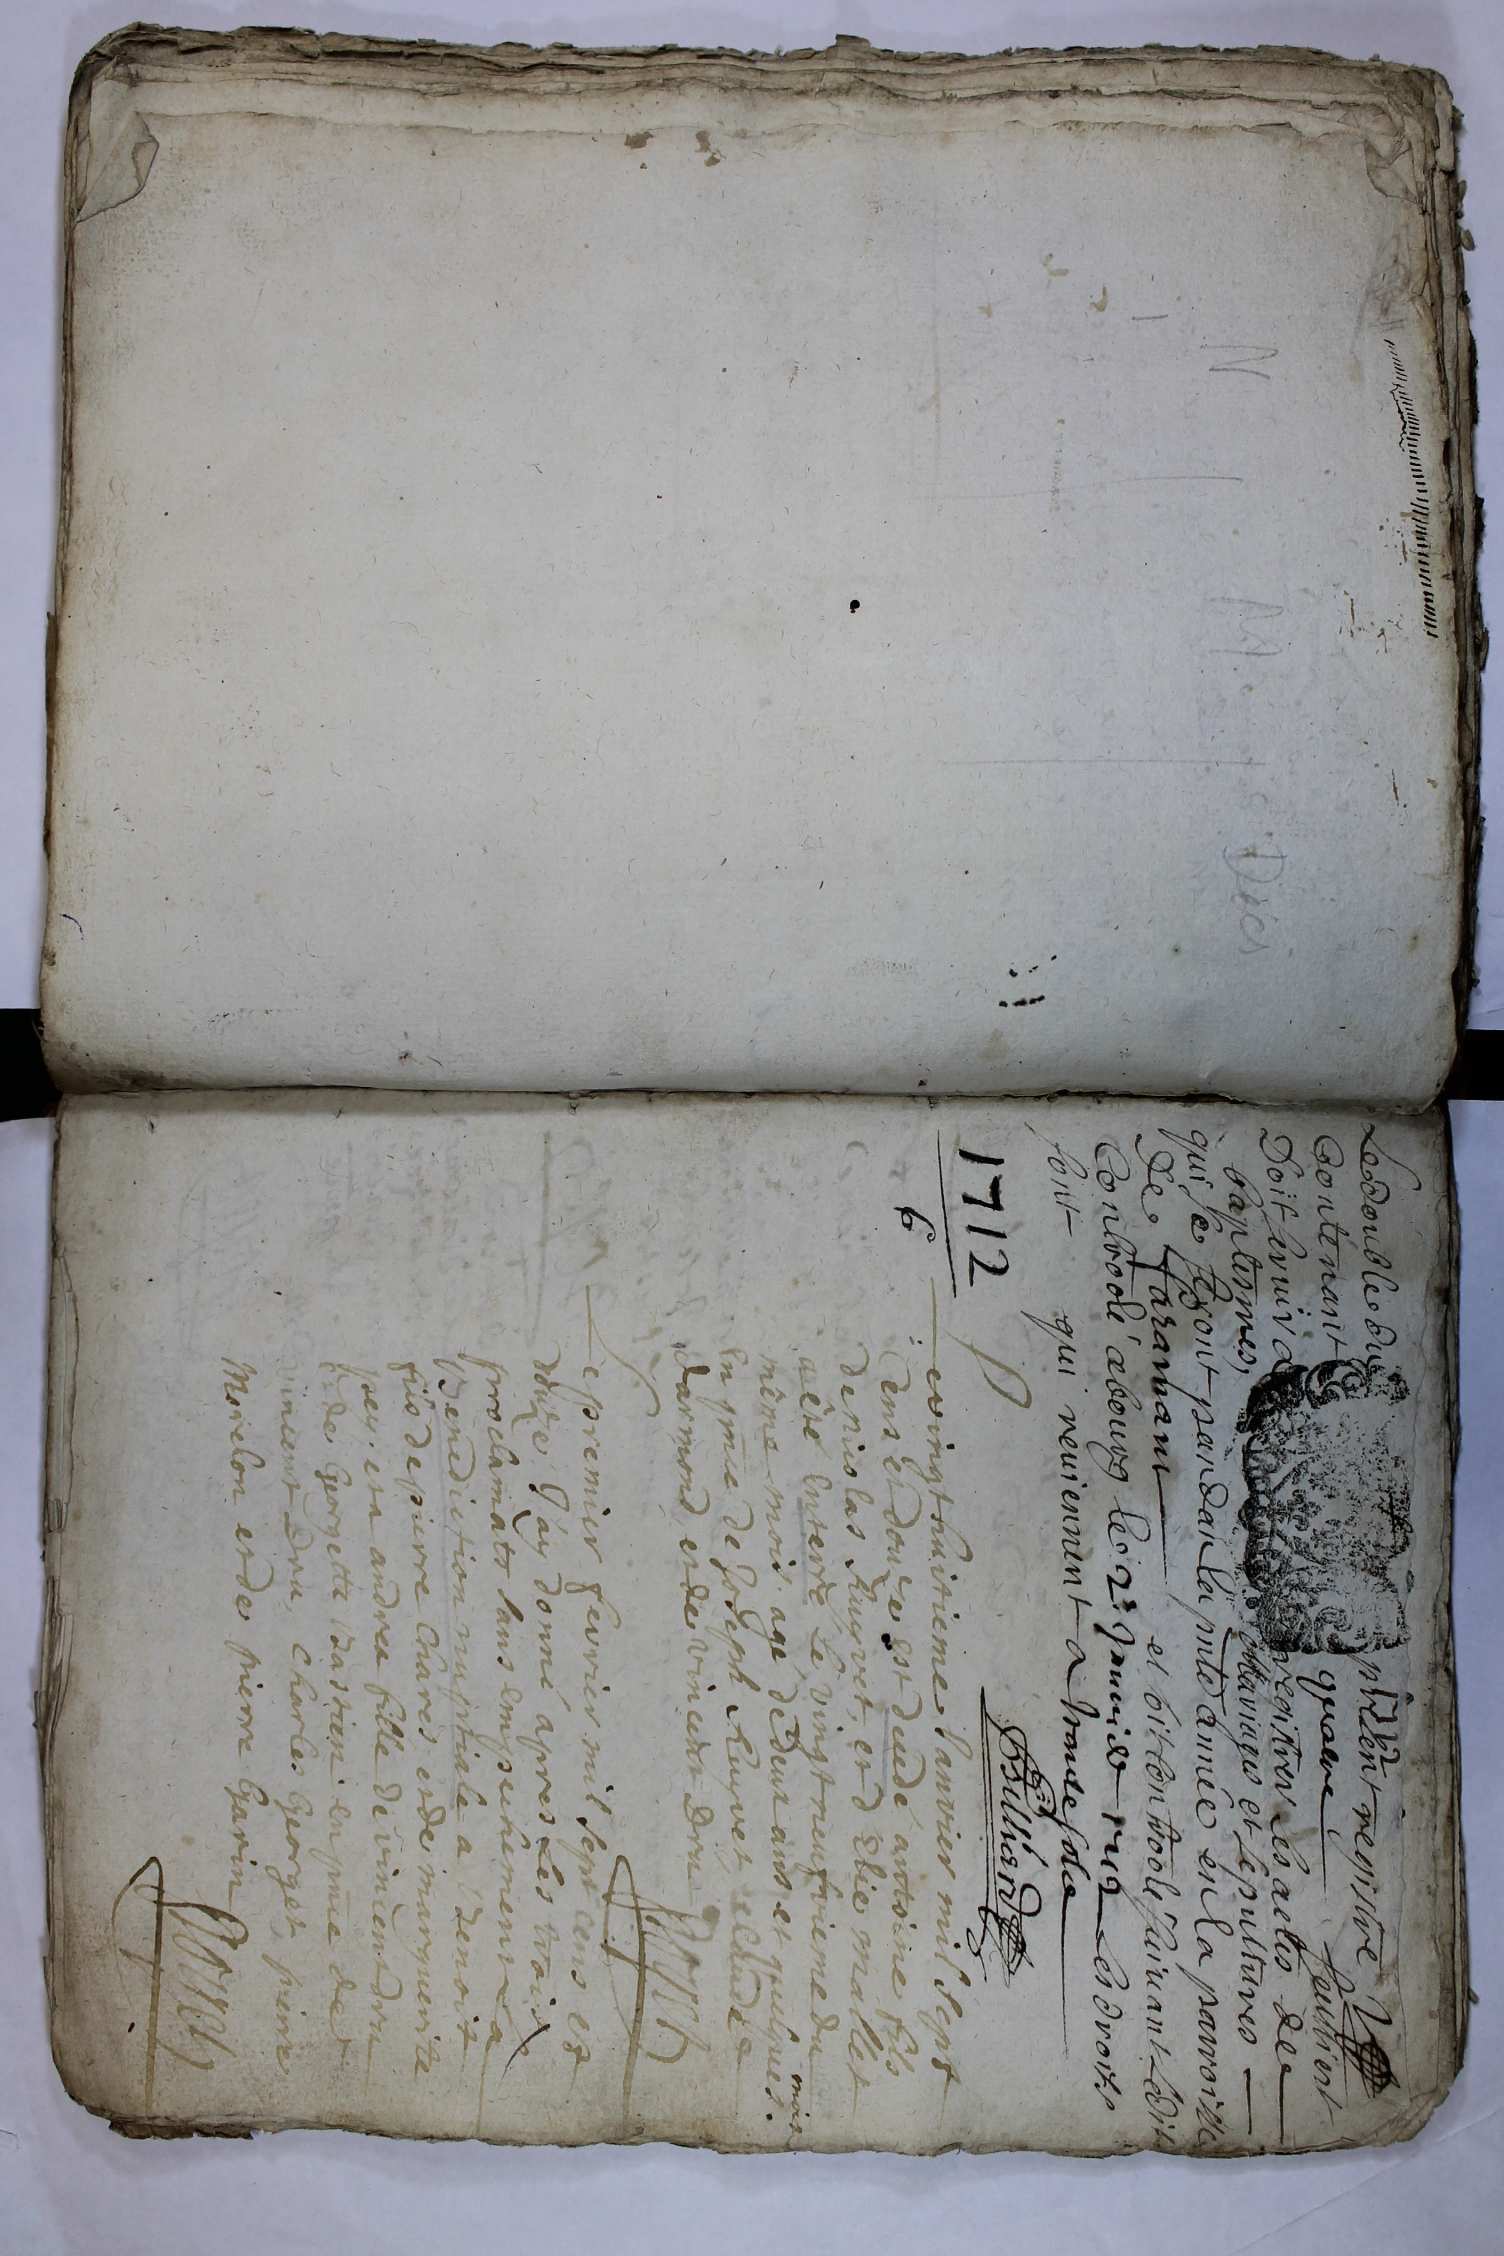 N M Déces
Le double du présent registre
Contenant quatre feuillets
Doit servir a registrer les actes de
baptesmes, Mariages et Sepultures
qui se feront pandan la pnte année en la parroisse
De faramant et oit controolé suivant ledit
Controolé abourg le 2e Janvier 1712 Les droits
sont qui reviennent a trante solz
Billiard
1712
6
Le vingt huitieme Janvier mil sept
Cens et douze est decede antoine fils
de nicolas Ruyvet, et d'Elie mallet
a été enterré Le vingt neufvieme du
même mois. agé de deux ans et quelques mois.
en pnce de Joseph Ruyvet claude
darmond et de vincent Dru
Le premier fevrier mil sept cens et
douze J'ay donné apres Les trois
proclamats sans empechement La
Benediction nuptiale a benoit
fils de pierre Chares et de marguerite
pey, et a andrea fille de vincent dru
et de Georgette Bastien en pnce de
vincent Dru, Charles Georget pierre
Morelon et de pierre Garin